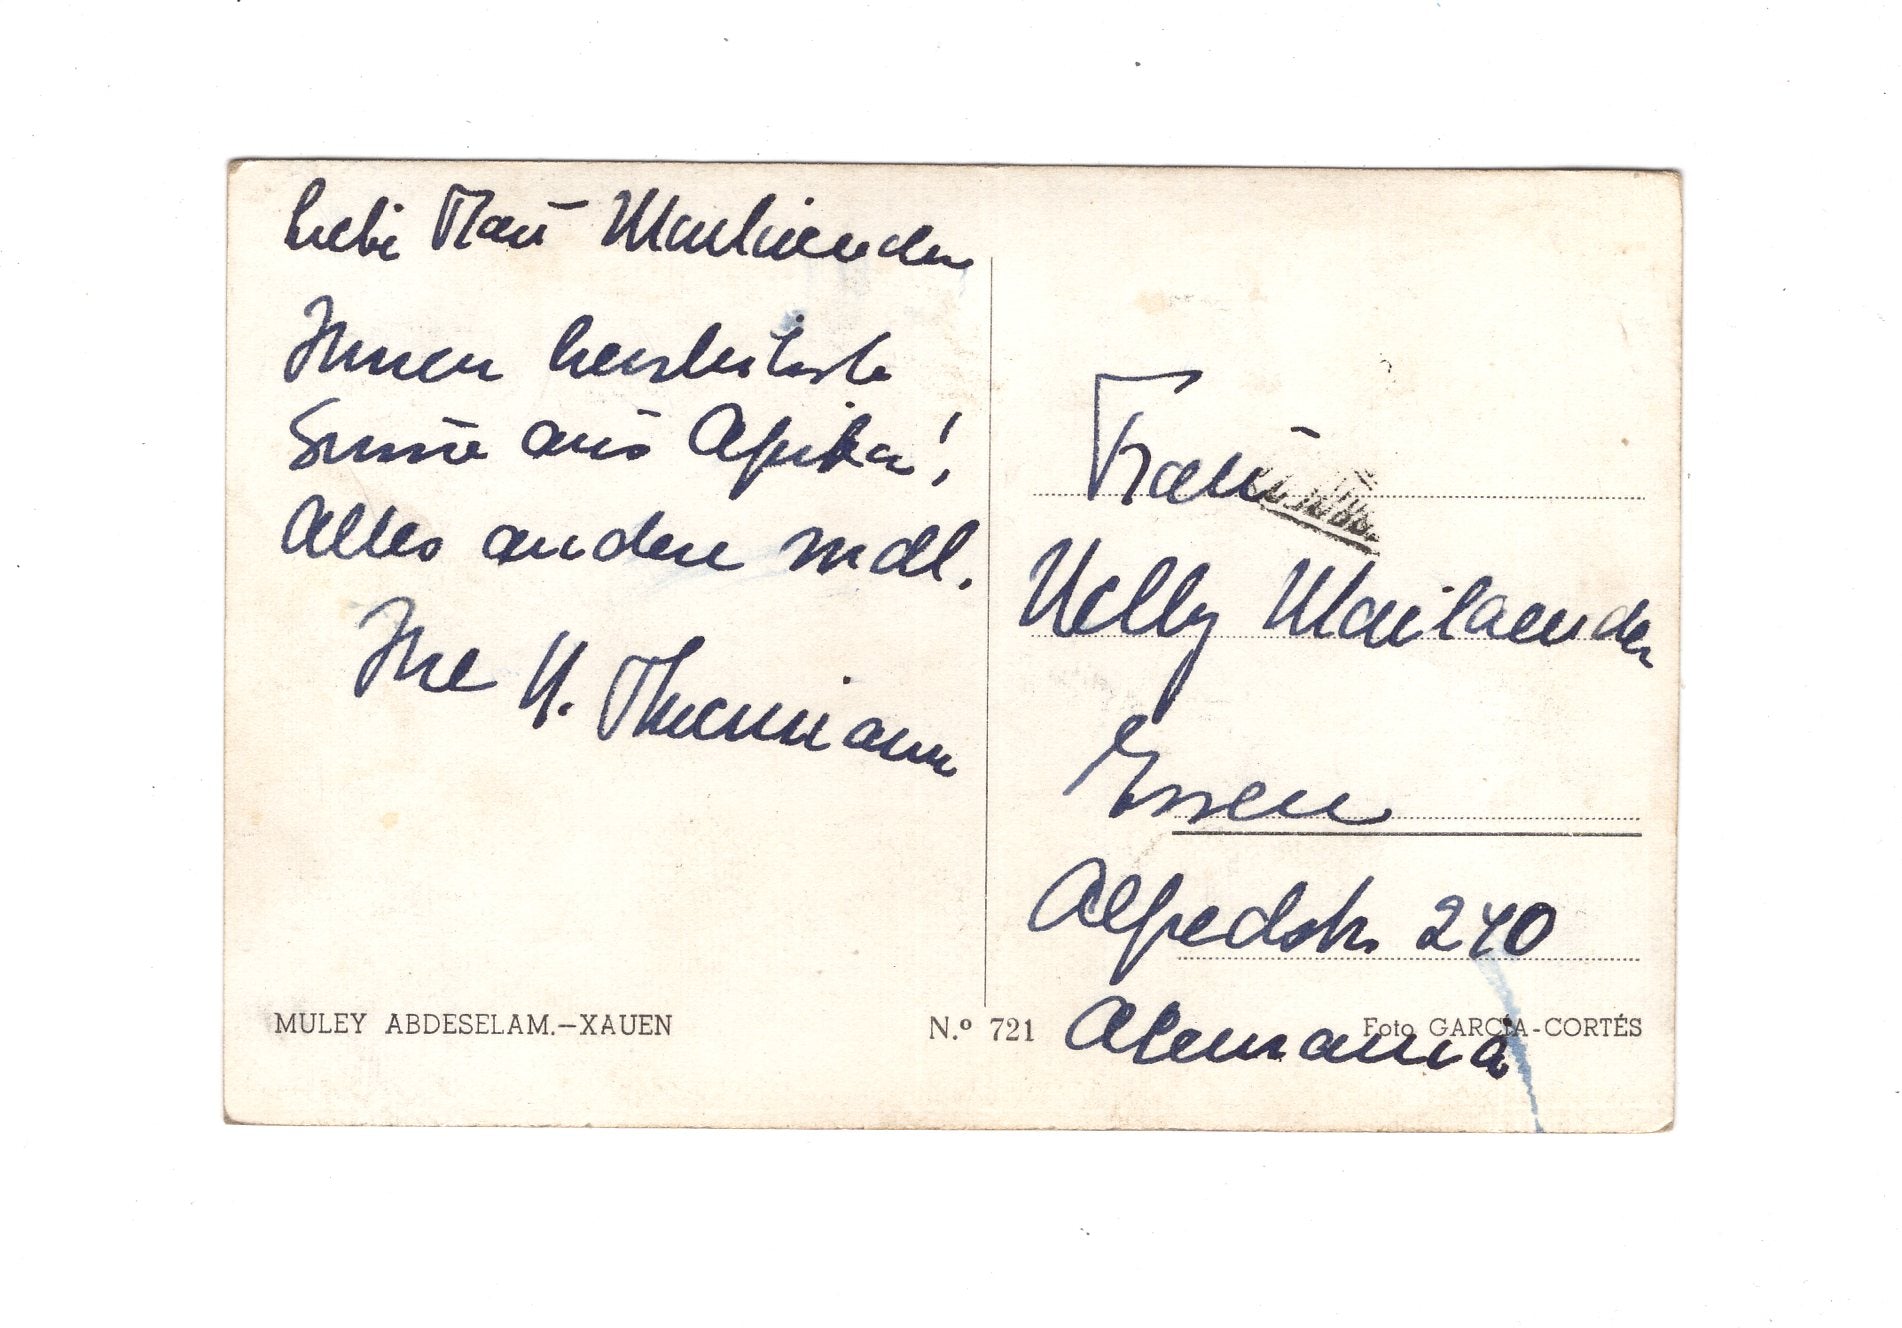 Liebe Frau Mailaender
Ihnen herzlichste
Grüsse aus Afrika!
Alles andere mdl.
Ihre H.
Frau
Nelly Mailaender
Essen
Alfredstr. 240
Alemania
MULEY ABDESELAM.–XAUEN
N.º 721
Foto GARCÍA-CORTÉS